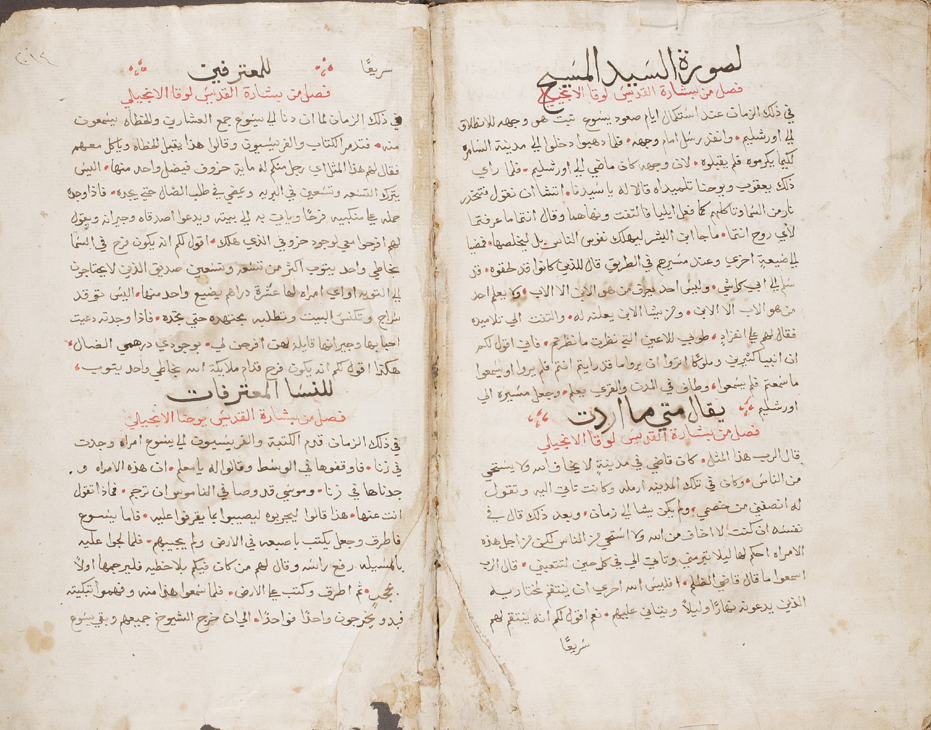 لصورة السيد المسيح
فصل من بشارة القديس لوقا الانجيلي
في ذلك الزمان عند استكمال ايام صعود يسوع ثبت هو وجهه للانطلاق
الي اورشليم • وانفذ رسل امام وجهه • فلما ذهبوا دخلوا الي مدينة السامره
لكيما يكرموه فلم يقبلوه • لان وجهه كان ماضي الي اورشليم • فلما راي
ذلك يعقوب ويوحنا تلميذاه قالا له يا سيدنا • اتشا ان نقول فتنحدر
نار من السما وتاكلهم كما فعل ايليا فالتفت ونهاهما وقال انتما ما عرفتما
لأي روح انتما • ما جا ابن البشر ليهلك نفوس الناس بل ليخلصها • فمضيا
الي ضيعة اخري وعند مسيرهم في الطريق قال للذين كانوا قد لحقوه • قد
سلم الي ابي كل شي • وليس احد يعرف من هو الابن الا الاب • ولا يعلم احد
من هو الاب الا الابن • ومن يشا الابن يعلنه له • والتفت الي تلاميذه
فقال لهم علي انفراد • طوبي للاعين التي نظرت ما نظرتم • فاني اقول لكم
ان انبيا كثيرين وملوكا ارادوا ان يروا ما قد رايتم انتم فلم يروا او يسمعوا
ما سمعتم فلم يسمعوا • وطاف في المدن والقري يعلم • وجعل مسيره الي
اورشليم يقال متي ما اردت
فصل من بشارة القديس لوقا الانجيلي
قال الرب هذا المثل • كان قاضي في مدينة لا يخاف الله ولا يستحي
من الناس • وكان في تلك المدينه ارمله وكانت تاتي اليه وتقول
له انصفني من خصمي • ولم يكن يشا الي زمان • وبعد ذلك قال في
نفسه ان كنت لا اخاف من الله ولا استحي من الناس لكن من اجل هذه
الامراه احكم لها ليلا تقرمني وتاتي الي في كل حين لتتعبني • قال الرب
اسمعوا ما قال قاضي الظلم • افليس الله احري ان ينتقم لمختاريه
الذين يدعونه نهارًا وليلاً • ويتاني عليهم • نعم اقول لكم انه ينتقم لهم
سريعًا
سريعًا للمعترفين
فصل من بشارة القديس لوقا الانجيلي
في ذلك الزمان لما ان دنا الي يسوع جمع العشارين والخطاه يسمعون
منه • فتذمر الكتاب والفريسيون وقالوا هذا يقبل الخطاه وياكل معهم
فقال لهم هذا المثل اي رجل منكم له ماية خروف فيضل واحد منها • اليس
يترك التسعه وتسعين في البريه ويمضي في طلب الضال حتي يجده • فاذا وجده
حمله علي منكبيه فرحًا وياتي به الي بيته ويدعوا اصدقاه وجيرانه ويقول
لهم افرحوا معي لوجود خروفي الذي هلك • اقول لكم انه يكون فرح في السما
بخاطي واحد يتوب اكثر من تسعه وتسعين صديق الذين لا يحتاجون
الي التوبه او اي امراه لها عشرة دراهم يضيع واحد منها • اليس توقد
سراج وتكنس البيت وتطلبه مجتهده حتي تجده • فاذا وجدته دعيت
احبابها وجيرانها قايلة لهن افرحن لي • بوجودي درهمي الضال •
هكذا اقول لكم انه يكون فرح قدام ملايكة الله بخاطي واحد يتوب •
للنسا المعترفات
فصل من بشارة القديس يوحنا الانجيلي
في ذلك الزمان قدم الكتبة والفريسيون الي يسوع امراه وجدت
في زنا • فاوقفوها في الوسط وقالوا له يا معلم • ان هذه الامراه و
جدناها في زنا • وموسي قد وصا في الناموس ان ترجم • فماذا تقول
انت عنها • هذا قالوا ليجربوه ليصيبوا بما يقرفوا عليه • فاما يسوع
فاطرق وجعل يكتب باصبعه في الارض ولم يجيبهم • فلما لجوا عليه
بالمسيله رفع راسه وقال لهم من كان فيكم بلا خطيه فليرجمها اولاً
بحجر • ثم اطرق وكتب علي الارض • فلما سمعوا هذا منه وفهموا تبكيته
فبدو يخرجون واحدًا فواحدًا • الي ان خرج الشيوخ جميعهم وبقي يسوع